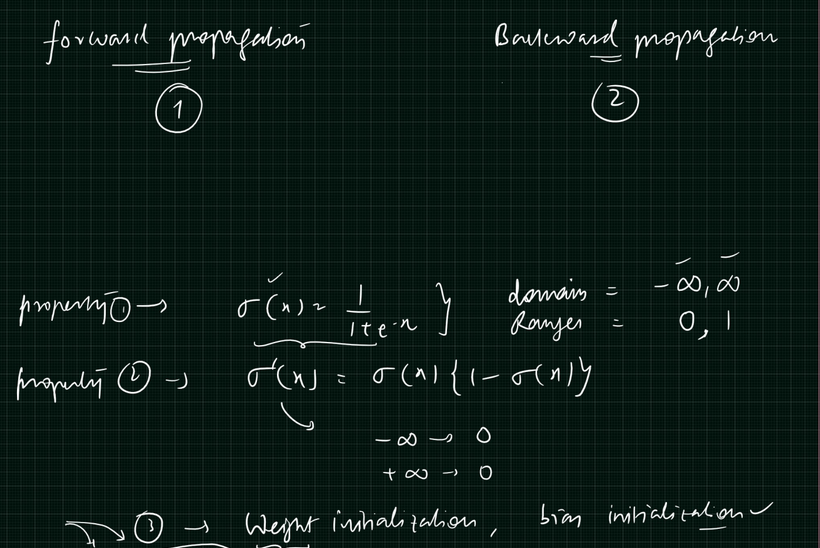 forward propagation
①
Backward propagation
②
property ① → σ(x) = 1/(1+e^-x) } domain = -∞, ∞
Ranges = 0, 1
property ② → σ'(x) = σ(x) {1 - σ(x)}
-∞ → 0
+∞ → 0
③ → Weight initialization, bias initialization ✓